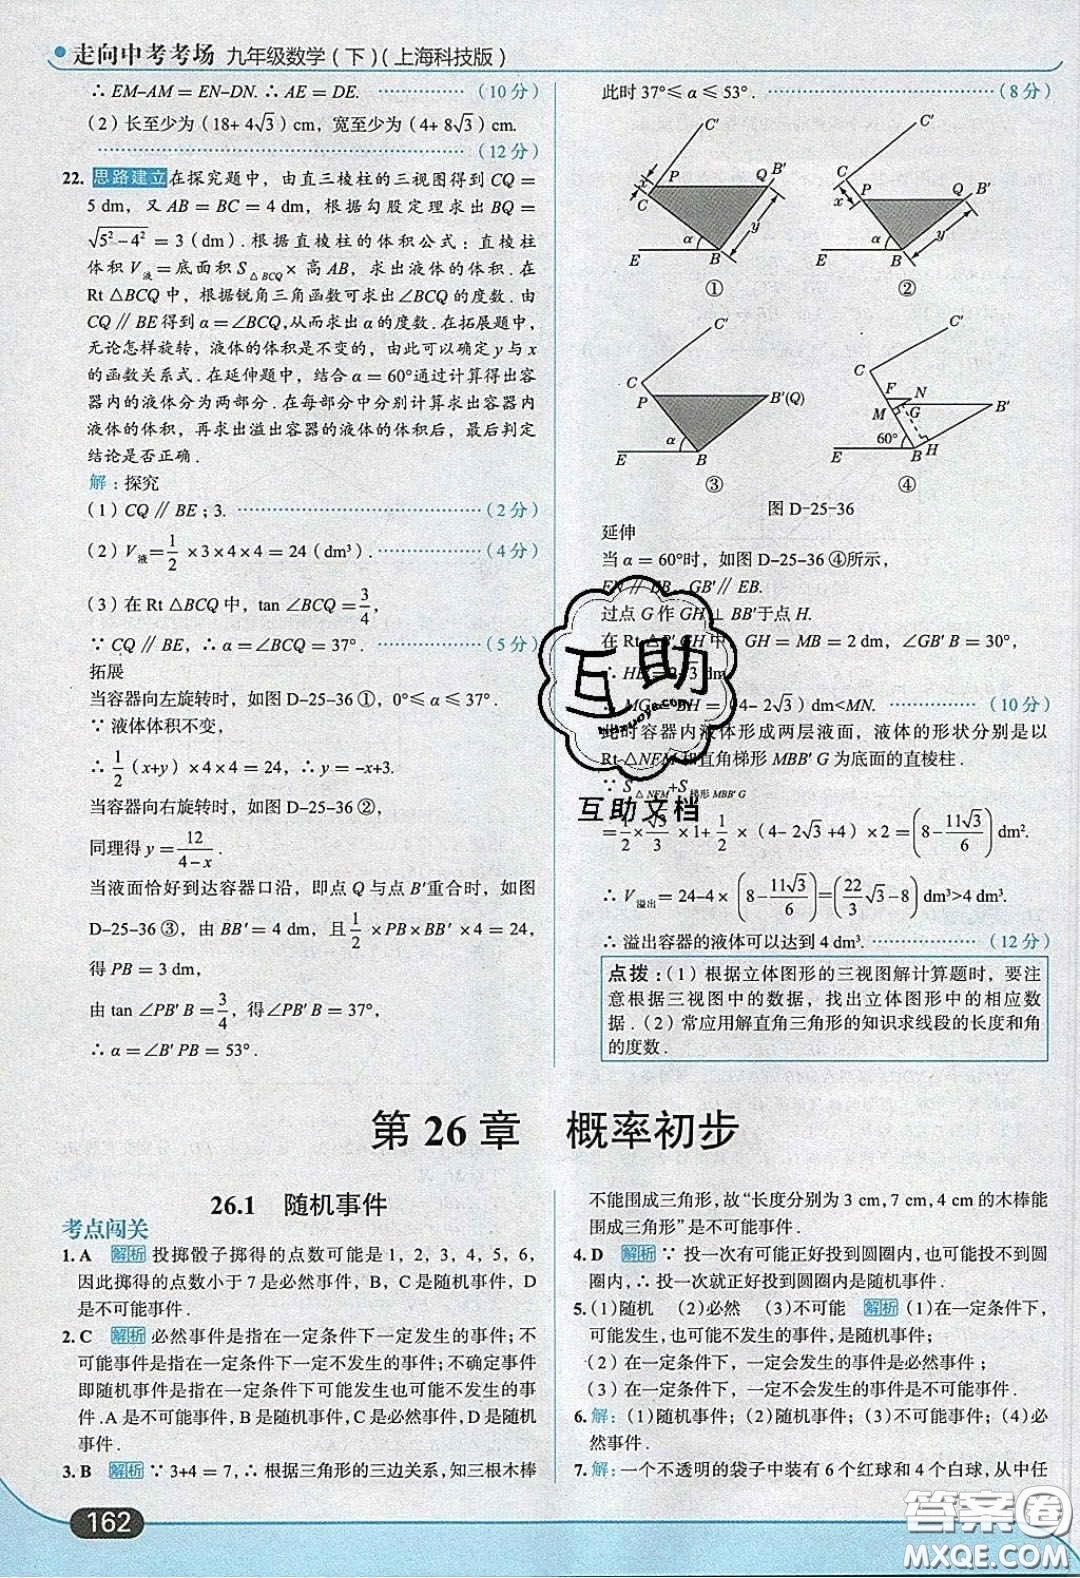 走向中考考场 九年级数学(下)(上海科技版)
∴ EM-AM=EN-DN. ∴ AE=DE. (10分)
(2)长至少为(18+4√3)cm,宽至少为(4+8√3)cm.
(12分)
22. 思路建立 在探究题中，由直三棱柱的三视图得到CQ=
5 dm，又AB=BC=4 dm，根据勾股定理求出BQ=
√(5²-4²)=3(dm).根据直棱柱的体积公式:直棱柱
体积V液=底面积S△BCQ×高AB，求出液体的体积.在
Rt△BCQ中，根据锐角三角函数可求出∠BCQ的度数.由
CQ∥BE得到α=∠BCQ,从而求出α的度数.在拓展题中，
无论怎样旋转，液体的体积是不变的，由此可以确定y与x
的函数关系式.在延伸题中，结合α=60°通过计算得出容
器内的液体分为两部分.在每部分中分别计算求出容器内
液体的体积，再求出溢出容器的液体的体积后，最后判定
结论是否正确.
解:探究
(1)CQ∥BE;3. (2分)
(2)V液=1/2×3×4×4=24(dm³). (4分)
(3)在Rt△BCQ中，tan∠BCQ=3/4,
∵ CQ∥BE，∴ α=∠BCQ=37°. (5分)
拓展
当容器向左旋转时，如图D-25-36①，0°≤α≤37°.
∵ 液体体积不变，
∴ 1/2(x+y)×4×4=24，∴ y=-x+3.
当容器向右旋转时，如图D-25-36②，
同理得y=12/(4-x).
当液面恰好到达容器口沿，即点Q与点B'重合时，如图
D-25-36③，由BB'=4 dm，且1/2×PB×BB'×4=24，
得PB=3 dm，
由tan∠PB'B=3/4，得∠PB'B=37°.
∴ α=∠B'PB=53°.
此时37°≤α≤53°. (8分)
C' x P Q B' C y α E B ①
C' C P Q B' x y α E B ②
C' C P B'(Q) α E B ③
C' C F N M G B' 60° H E B ④
图D-25-36
延伸
当α=60°时，如图D-25-36④所示，
FN∥EB，GB'∥EB.
过点G作GH⊥BB'于点H.
在Rt△B'GH中，GH=MB=2 dm，∠GB'B=30°，
∴ HB'=2√3 dm.
∴ MG=BH=(4-2√3)dm<MN. (10分)
此时容器内液体形成两层液面，液体的形状分别是以
Rt△NFM和直角梯形MBB'G为底面的直棱柱.
∵ S△NFM+S梯形MBB'G
=1/2×√3/3×1+1/2×(4-2√3+4)×2=(8-11√3/6)dm².
∴ V溢出=24-4×(8-11√3/6)=(22/3√3-8)dm³>4 dm³.
∴ 溢出容器的液体可以达到4 dm³. (12分)
点拨:(1)根据立体图形的三视图解计算题时，要注
意根据三视图中的数据，找出立体图形中的相应数
据.(2)常应用解直角三角形的知识求线段的长度和角
的度数.
互助
huzuoye.com
互助文档
第26章 概率初步
26.1 随机事件
考点闯关
1. A 解析 投掷骰子掷得的点数可能是1，2，3，4，5，6，
因此掷得的点数小于7是必然事件，B，C是随机事件，D
是不可能事件.
2. C 解析 必然事件是指在一定条件下一定发生的事件;不
可能事件是指在一定条件下一定不发生的事件;不确定事件
即随机事件是指在一定条件下可能发生也可能不发生的事
件.A是不可能事件,B是随机事件,C是必然事件,D是随机
事件.
3. B 解析 ∵ 3+4=7，∴ 根据三角形的三边关系，知三根木棒
不能围成三角形，故“长度分别为3 cm,7 cm,4 cm的木棒能
围成三角形”是不可能事件.
4. D 解析 ∵ 投一次有可能正好投到圆圈内，也可能投不到圆
圈内，∴ 投一次就正好投到圆圈内是随机事件.
5. (1)随机 (2)必然 (3)不可能 解析 (1)在一定条件下，
可能发生，也可能不发生的事件是随机事件;
(2)在一定条件下，一定会发生的事件是必然事件;
(3)在一定条件下，一定不会发生的事件是不可能事件.
6. 解:(1)随机事件;(2)随机事件;(3)不可能事件;(4)必
然事件.
7. 解:一个不透明的袋子中装有6个红球和4个白球,从中任
162
答案圈
MXQE.COM